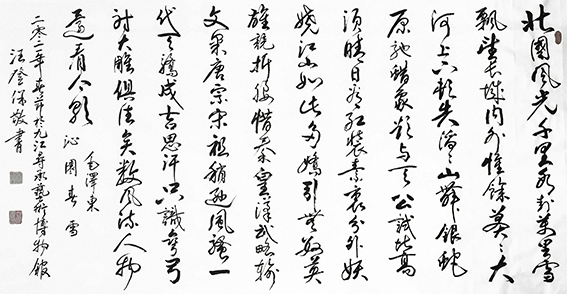 北國風光千里冰封萬里雪
飄望長城内外惟餘莽〻大
河上下頓失滔〻山舞銀蛇
原馳蠟象欲与天公試比高
須晴日看紅裝素裹分外妖
嬈江山如此多嬌引無數英
雄競折腰惜秦皇漢武略輸
文采唐宗宋祖稍遜風騷一
代天驕成吉思汗只識彎弓
射大雕俱往矣數風流人物
還看今朝 沁園春雪 毛澤東
二〇二一年春節於九江 藝術博物館
汪登保敬書